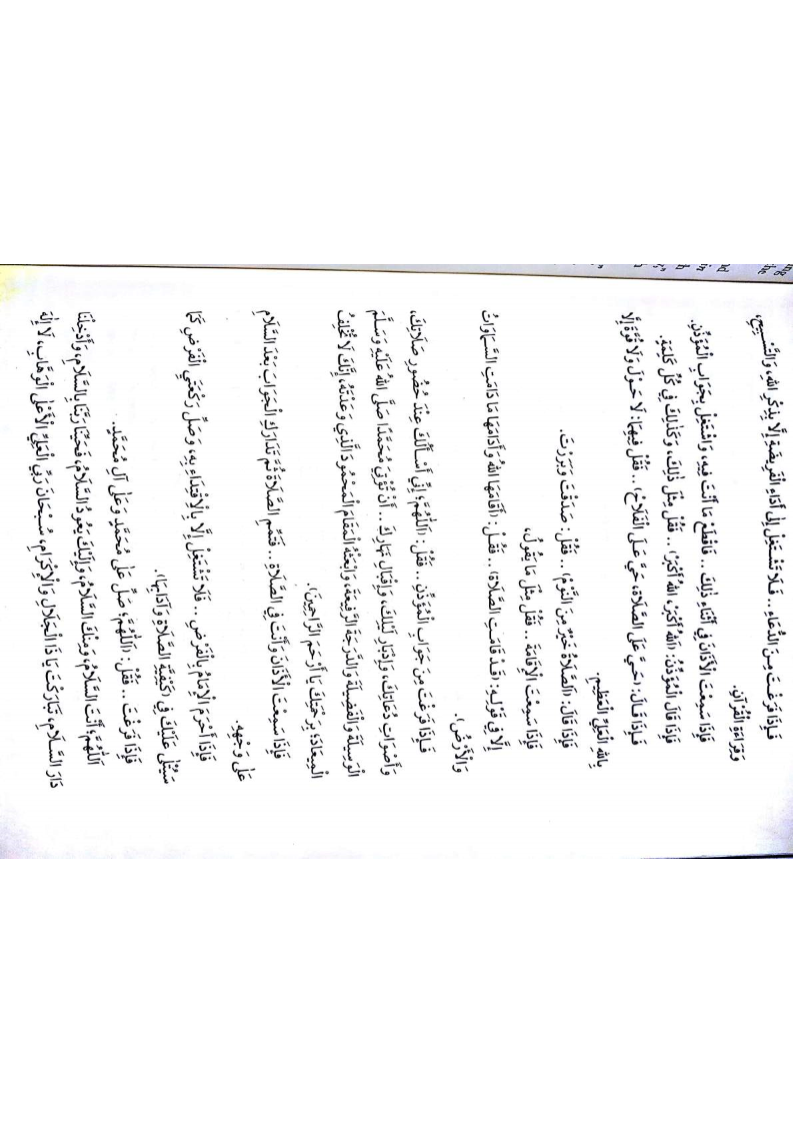 فَإِذَا فَرَغْتَ مِنَ الدُّعَاءِ .. فَلَا تَشْتَغِلْ إِلَى أَدَاءِ الْفَرِيضَةِ إِلَّا بِذِكْرِ اللهِ، وَالتَّسْبِيحِ،
وَقِرَاءَةِ الْقُرْآنِ.
فَإِذَا سَمِعْتَ الْأَذَانَ فِي أَثْنَاءِ ذَلِكَ .. فَاقْطَعْ مَا أَنْتَ فِيهِ، وَاشْتَغِلْ بِجَوَابِ الْمُؤَذِّنِ.
فَإِذَا قَالَ الْمُؤَذِّنُ: (اللهُ أَكْبَرُ، اللهُ أَكْبَرُ) .. فَقُلْ مِثْلَ ذَلِكَ، وَكَذَلِكَ فِي كُلِّ كَلِمَةٍ.
فَإِذَا قَالَ: (حَيَّ عَلَى الصَّلَاةِ، حَيَّ عَلَى الْفَلَاحِ) .. فَقُلْ فِيهِمَا: لَا حَوْلَ وَلَا قُوَّةَ إِلَّا
بِاللهِ الْعَلِيِّ الْعَظِيمِ.
فَإِذَا قَالَ: (الصَّلَاةُ خَيْرٌ مِنَ النَّوْمِ) .. فَقُلْ: صَدَقْتَ وَبَرِرْتَ.
فَإِذَا سَمِعْتَ الْإِقَامَةَ .. فَقُلْ مِثْلَ مَا يَقُولُ،
إِلَّا فِي قَوْلِهِ: (قَدْ قَامَتِ الصَّلَاةُ) .. فَقُلْ: (أَقَامَهَا اللهُ وَأَدَامَهَا مَا دَامَتِ السَّمَاوَاتُ
وَالْأَرْضُ).
فَإِذَا فَرَغْتَ مِنْ جَوَابِ الْمُؤَذِّنِ .. فَقُلْ: (اَللَّهُمَّ؛ إِنِّي أَسْأَلُكَ عِنْدَ حُضُورِ صَلَاتِكَ،
وَأَصْوَاتِ دُعَاتِكَ، وَإِدْبَارِ لَيْلِكَ، وَإِقْبَالِ نَهَارِكَ .. أَنْ تُؤْتِيَ مُحَمَّدًا صَلَّى اللهُ عَلَيْهِ وَسَلَّمَ
الْوَسِيلَةَ وَالْفَضِيلَةَ وَالدَّرَجَةَ الرَّفِيعَةَ، وَابْعَثْهُ الْمَقَامَ الْمَحْمُودَ الَّذِي وَعَدْتَهُ، إِنَّكَ لَا تُخْلِفُ
الْمِيعَادَ؛ بِرَحْمَتِكَ يَا أَرْحَمَ الرَّاحِمِينَ).
فَإِذَا سَمِعْتَ الْأَذَانَ وَأَنْتَ فِي الصَّلَاةِ .. فَتَمِّمِ الصَّلَاةَ ثُمَّ تَدَارَكِ الْجَوَابَ بَعْدَ السَّلَامِ
عَلَى وَجْهِهِ.
فَإِذَا أَحْرَمَ الْإِمَامُ بِالْفَرْضِ .. فَلَا تَشْتَغِلْ إِلَّا بِالْاِقْتِدَاءِ بِهِ، وَصَلِّ رَكْعَتَيِ الْفَرْضِ كَمَا
سَيُتْلَى عَلَيْكَ فِي (كَيْفِيَّةِ الصَّلَاةِ وَآدَابِهَا).
فَإِذَا فَرَغْتَ .. فَقُلْ: (اَللَّهُمَّ؛ صَلِّ عَلَى مُحَمَّدٍ وَعَلَى آلِ مُحَمَّدٍ.
اَللَّهُمَّ؛ أَنْتَ السَّلَامُ، وَمِنْكَ السَّلَامُ، وَإِلَيْكَ يَعُودُ السَّلَامُ، فَحَيِّنَا رَبَّنَا بِالسَّلَامِ، وَأَدْخِلْنَا
دَارَ السَّلَامِ، تَبَارَكْتَ يَا ذَا الْجَلَالِ وَالْإِكْرَامِ، سُبْحَانَ رَبِّيَ الْعَلِيِّ الْأَعْلَى الْوَهَّابِ، لَا إِلَهَ